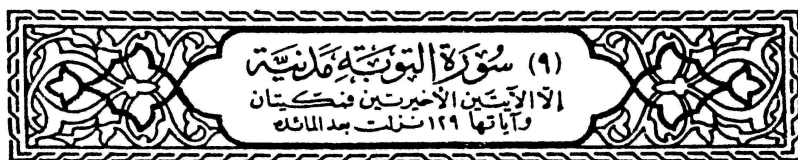 (٩) سُورَةُ التَّوبَةِ مَدَنِيَّة
إلّا الآيتَين الأخيرتَين فمَكيتان
وآياتها ١٢٩ نزلت بعد المائدة